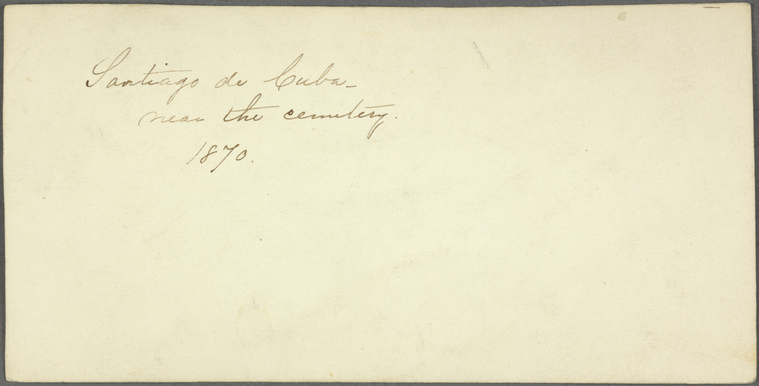 Santiago de Cuba-
near the cemetery.
1870.